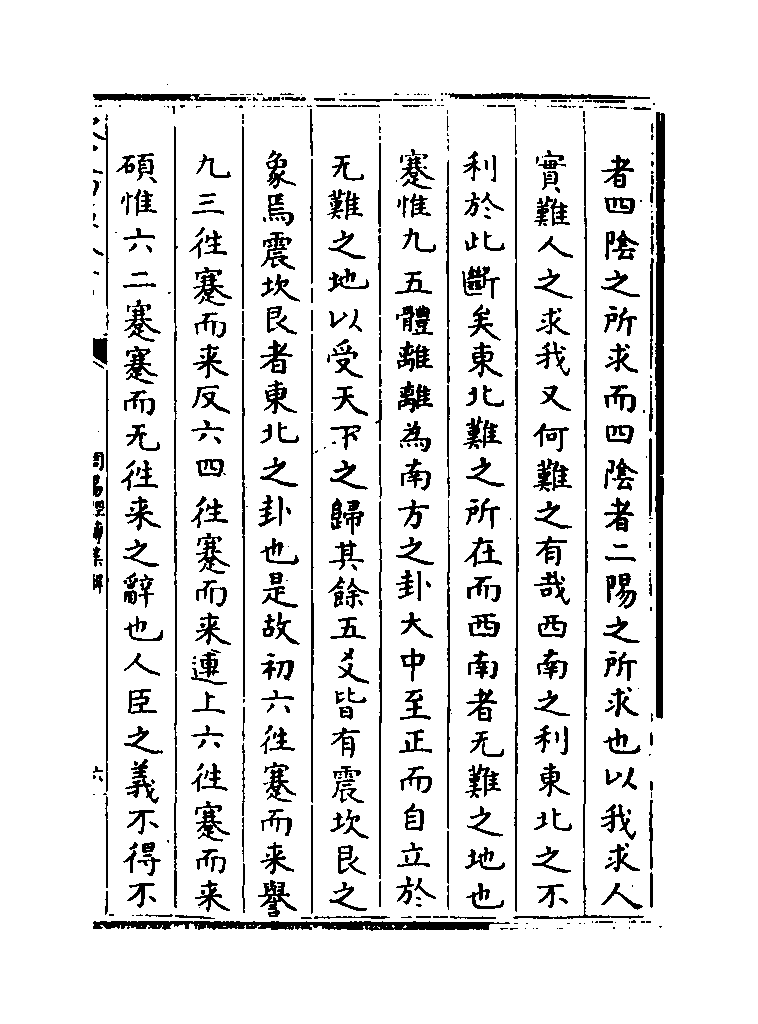 者四陰之所求而四陰者二陽之所求也以我求人
實難人之求我又何難之有哉西南之利東北之不
利於此斷矣東北難之所在而西南者无難之地也
蹇惟九五體離離為南方之卦大中至正而自立於
无難之地以受天下之歸其餘五爻皆有震坎艮之
象焉震坎艮者東北之卦也是故初六徃蹇而来譽
九三徃蹇而来反六四徃蹇而来連上六徃蹇而来
碩惟六二蹇蹇而无徃来之辭也人臣之義不得不
六